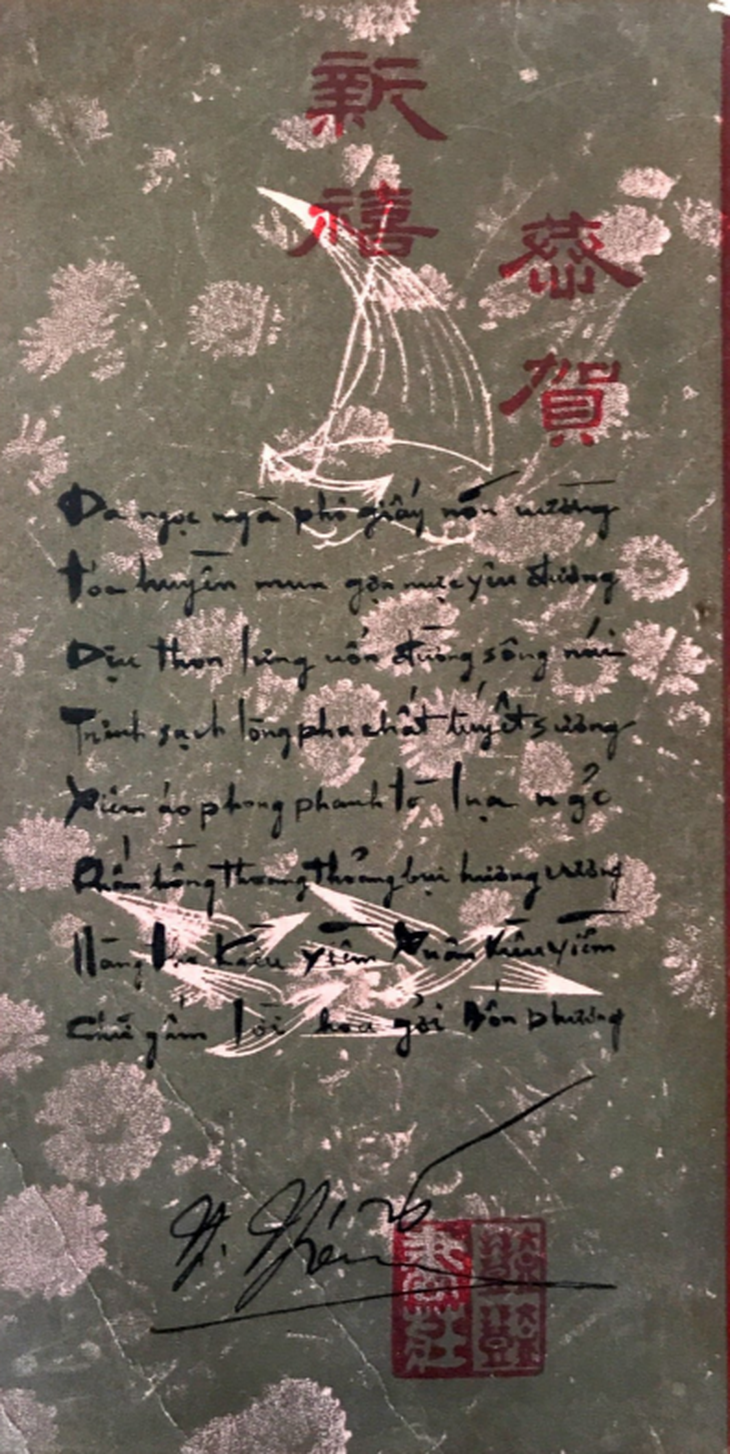 恭賀
新禧
Da ngọc ngà phô giấy nõn nường
Tỏa huyền mun gợn mực yêu đương
Dịu thon lưng uốn đường sông núi
Trinh sạch lòng pha chất tuyết sương
Xiêm áo phong phanh tờ lụa ngỏ
Phấn hồng thoang thoảng bụi hương vương
Nàng Kiều yểm Xuân Kiều yểm
Chữ gấm lời hoa gởi bốn phương